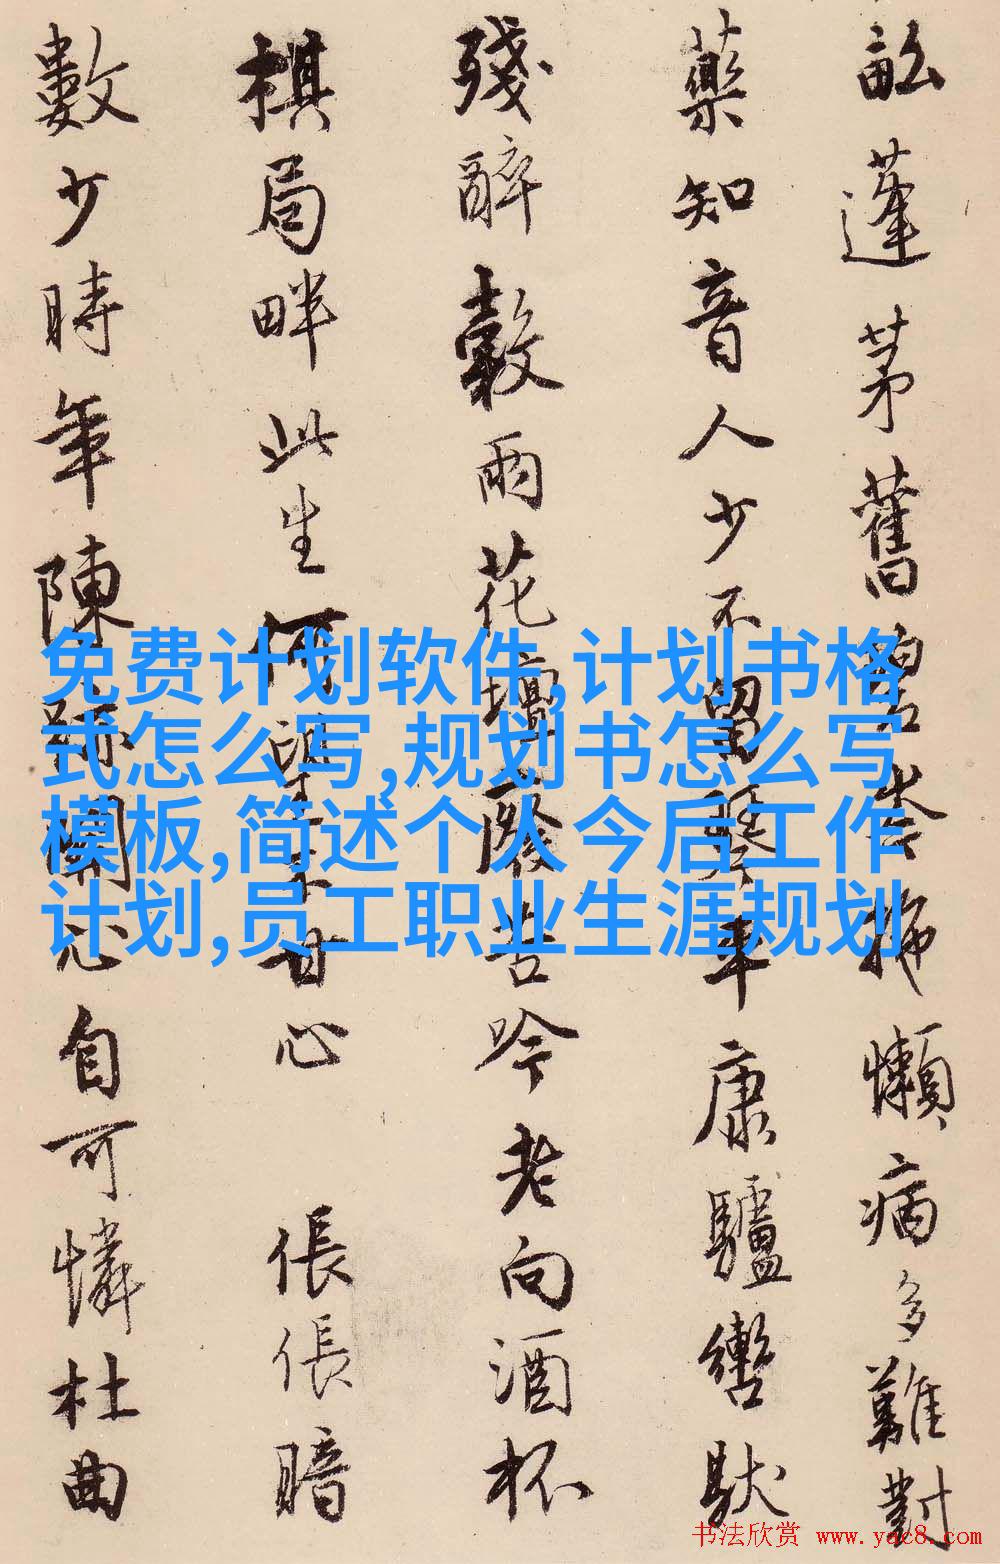 蓬茅舊碧岑懶病多難對
藥知音人少不留琴平康驢轡馱
殘醉穀雨花壇廢苦吟老向酒杯
棋局畔此生何望不甘心 倀倀暗
數少時年陳跡關心自可憐杜曲
免费计划软件,计划书格
式怎么写,规划书怎么写
模板,简述个人今后工作
计划,员工职业生涯规划
书法欣赏 www.yac8.com